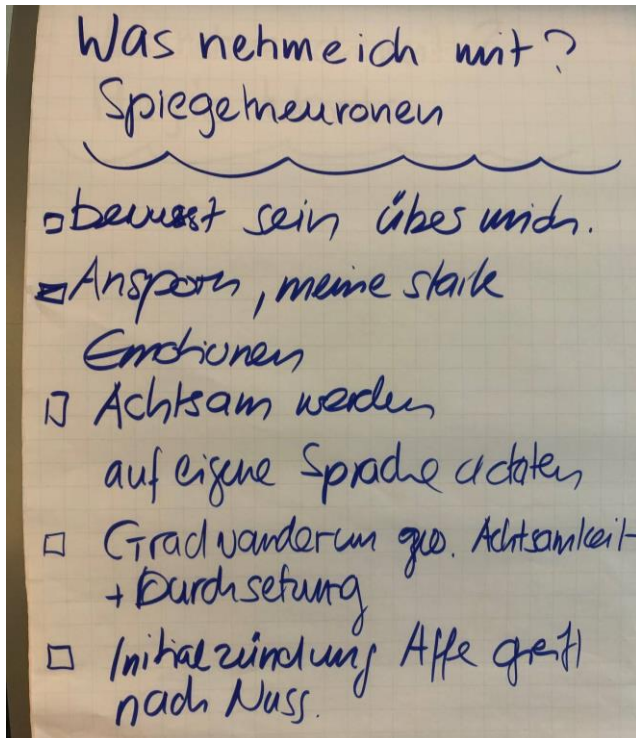 Was nehme ich mit?
Spiegelneuronen
bewusst sein über mich.
Ansporn, meine starke
Emotionen
Achtsam werden
auf eigene Sprache achten
Gradwanderun zw. Achtsamkeit
+ Durchsetung
Initialzündung Affe greift
nach Nuss.